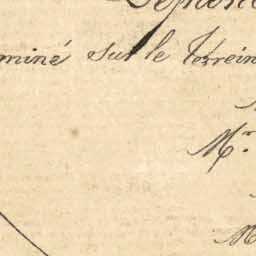 miné sur le terrein
M.r
M